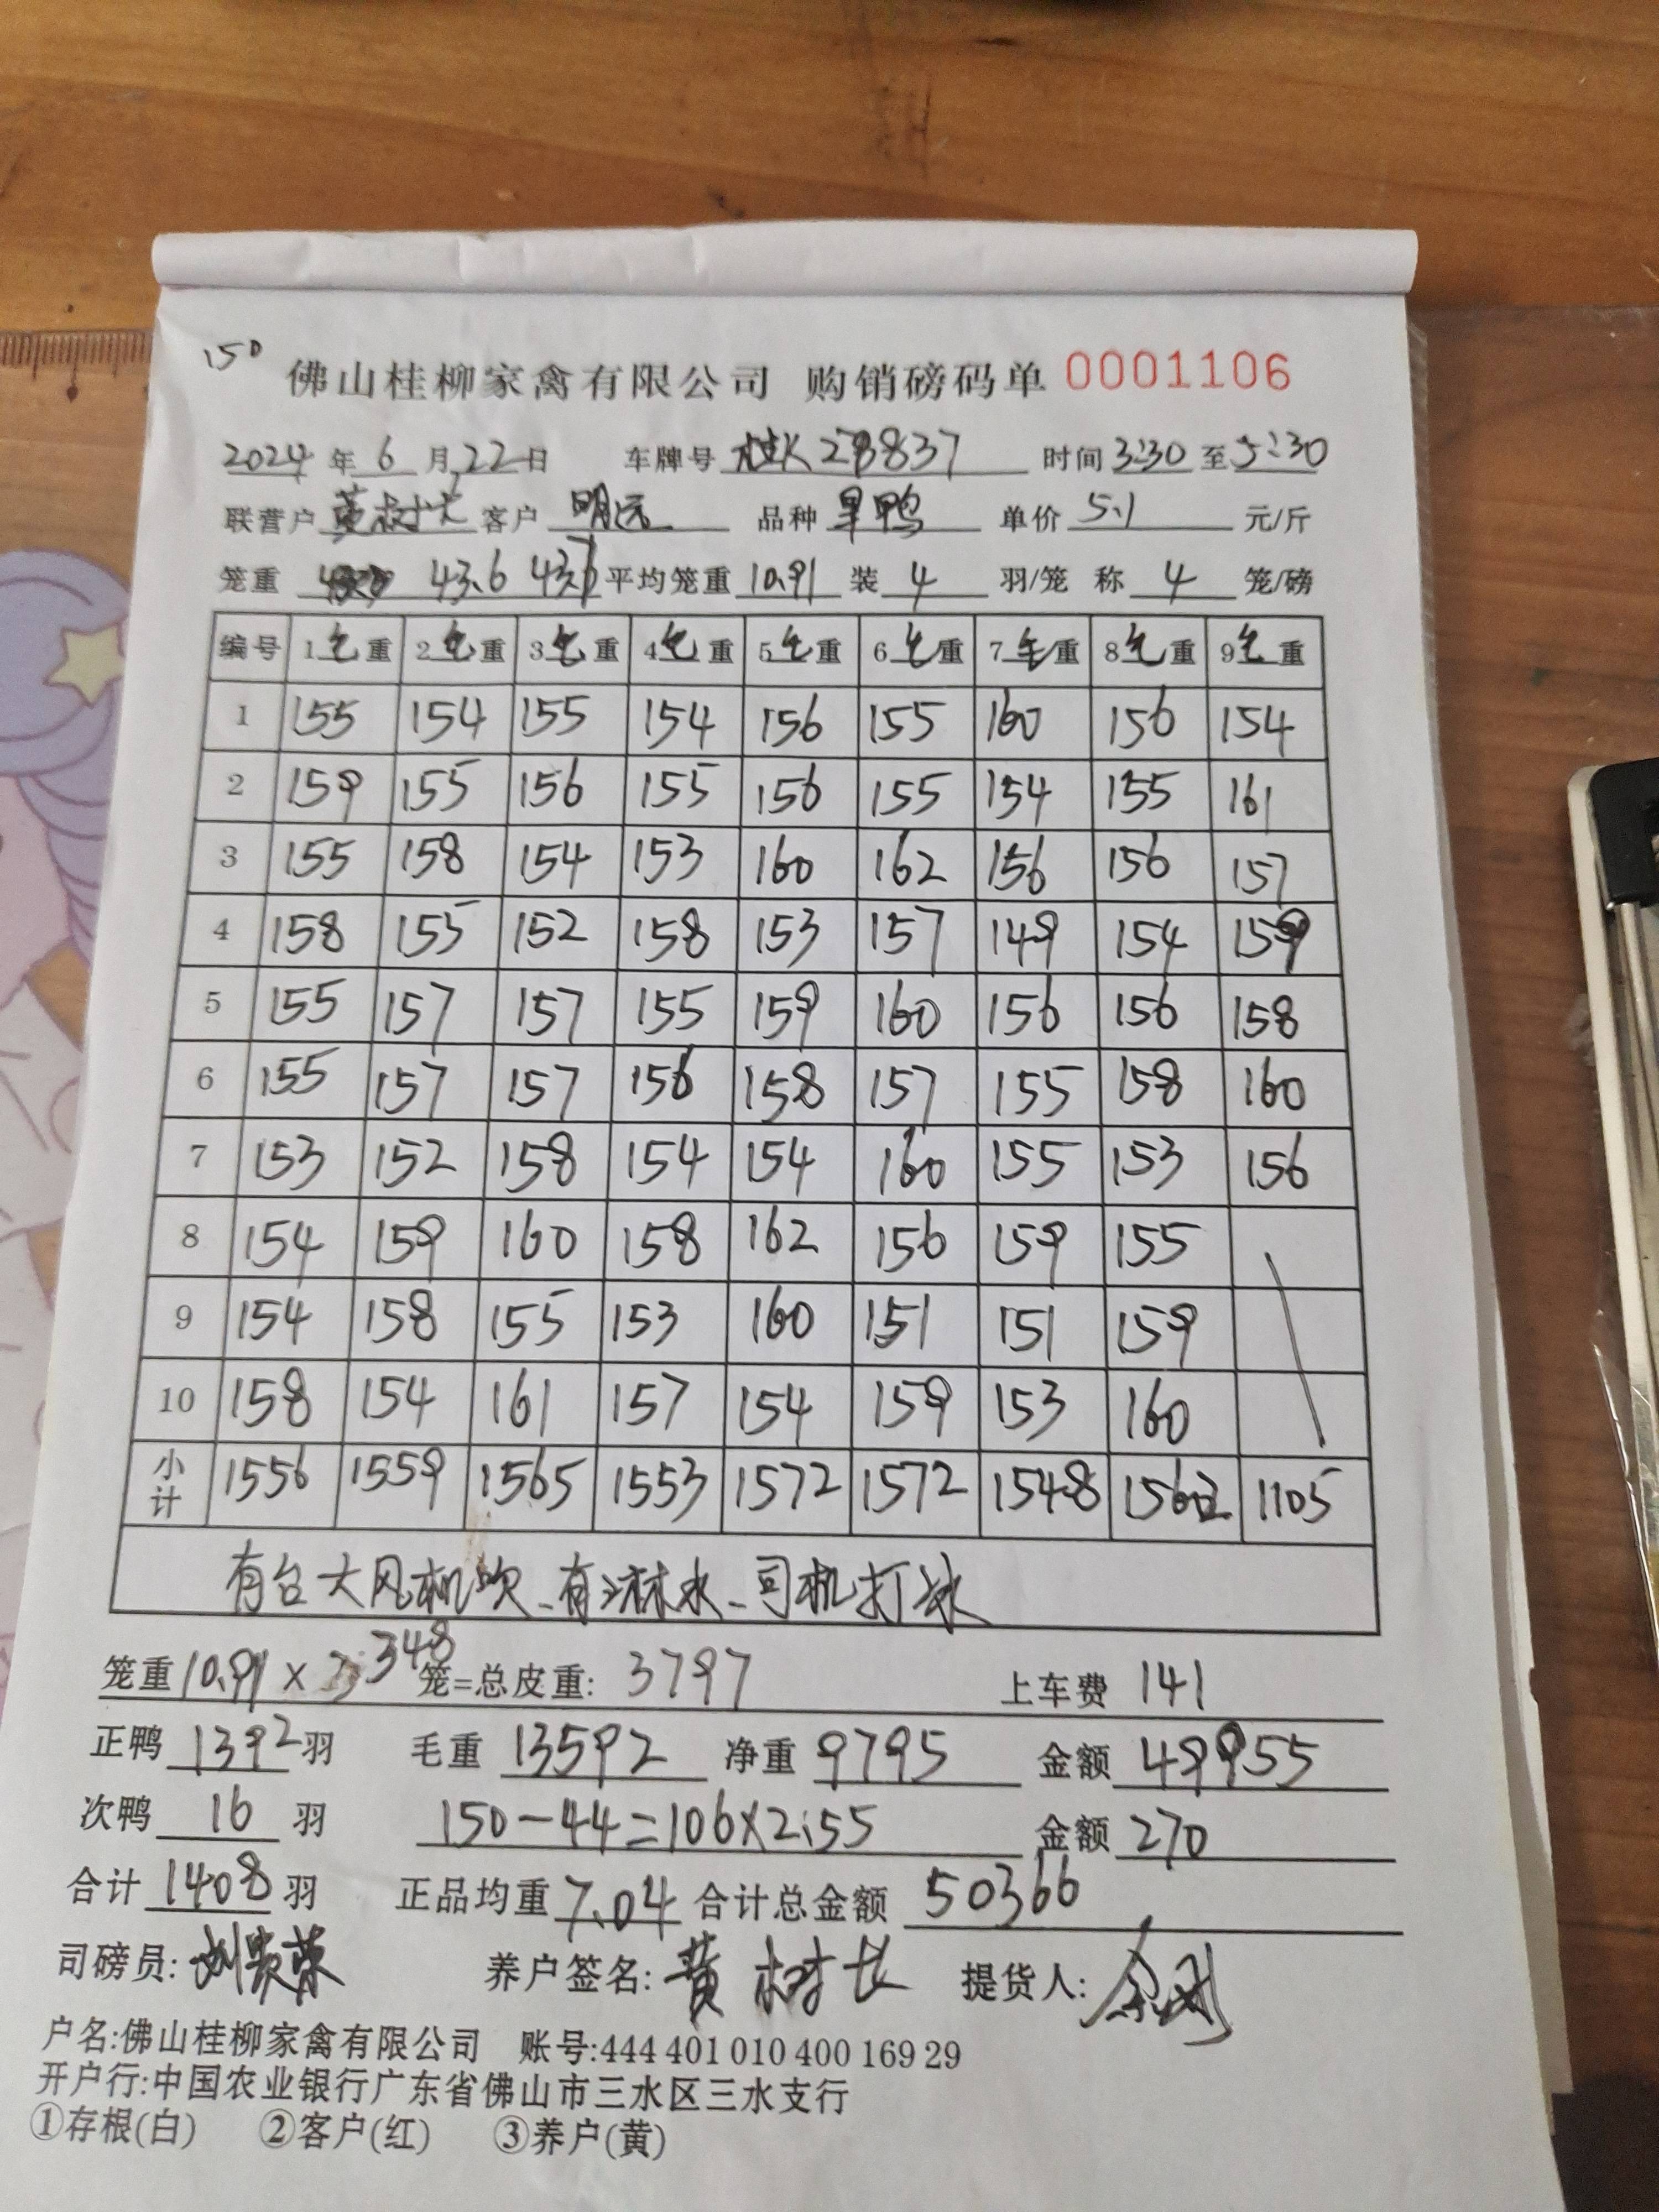 150
佛山桂柳家禽有限公司 购销磅码单 0001106
2024 年 6 月 22 日 车牌号 桂K 28837 时间 3:30 至 5:30
联营户 黄树长 客户 明远 品种 旱鸭 单价 5.1 元/斤
笼重 43.6 43.7 平均笼重 10.91 装 4 羽/笼 称 4 笼/磅
编号 1毛重 2毛重 3毛重 4毛重 5毛重 6毛重 7毛重 8毛重 9毛重
1 155 154 155 154 156 155 160 156 154
2 159 155 156 155 156 155 154 155 161
3 155 158 154 153 160 162 156 156 157
4 158 155 152 158 153 157 149 154 159
5 155 157 157 155 159 160 156 156 158
6 155 157 157 156 158 157 155 158 160
7 153 152 158 154 154 160 155 153 156
8 154 159 160 158 162 156 159 155
9 154 158 155 153 160 151 151 159
10 158 154 161 157 154 159 153 160
小计 1556 1559 1565 1553 1572 1572 1548 1562 1105
有台大风机吹-有淋水-司机打冰
笼重 10.91 × 348 笼=总皮重: 3797 上车费 141
正鸭 1392 羽 毛重 13592 净重 9795 金额 49955
次鸭 16 羽 150-44=106×2.55 金额 270
合计 1408 羽 正品均重 7.04 合计总金额 50366
司磅员: 刘贵荣 养户签名: 黄树长 提货人:
户名:佛山桂柳家禽有限公司 账号:444 401 010 400 169 29
开户行:中国农业银行广东省佛山市三水区三水支行
①存根(白) ②客户(红) ③养户(黄)